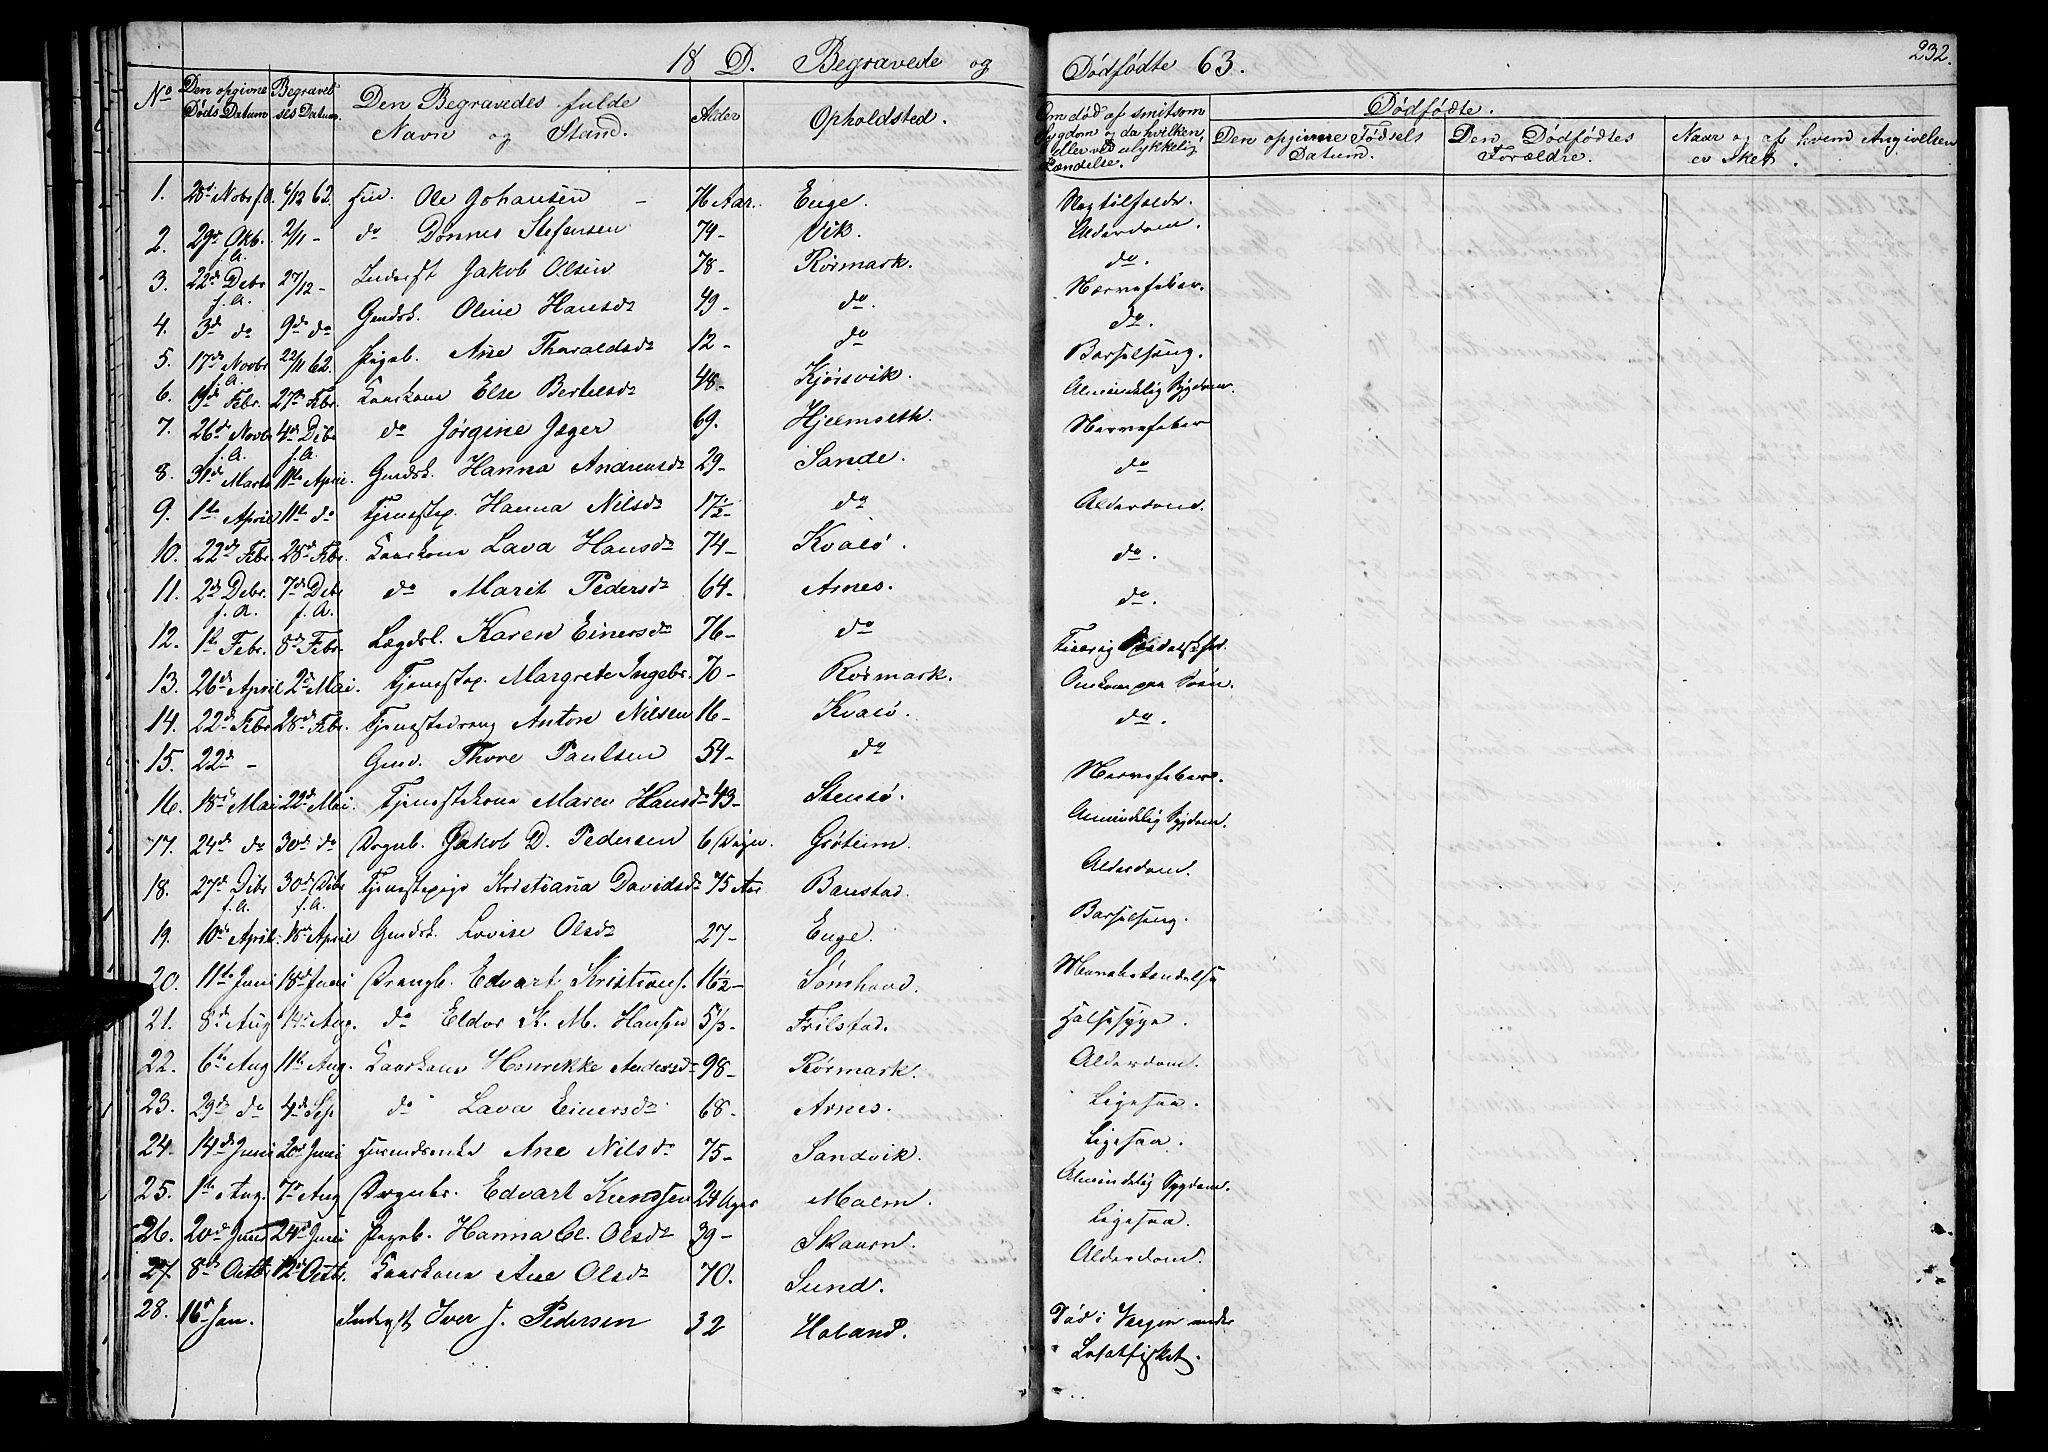 18 D. Begravede og Dødfødte 63. 232.
No Den opgivne Døds Datum Begravelses Datum. Den Begravedes fulde Navn og Stand. Alder Opholdsted. Om død af smitsom Sygdom og da hvilken, eller ved ulykkelig Hændelse. Dødfødte.
Den opgivne Fødsels Datum. Den Dødfødtes Forældre. Naar og af hvem Angivelsen er sket.
1. 28d Novbr f.A. 6/12 62. Ole Johansen 76 Aar. Enge. Slagtilfælde.
2. 29d Okb. f.A. 2/11 - do Dønnes Stefensen 74 - Vik. Alderdom.
3. 22d Debr f.A. 27/12 - Inderst Jakob Olsen 78 - Rørmark. do.
4. 3d do 9d do Gmdsk. Oline Hansdr 49 - do. Nervefeber.
5. 17d Novbr f.A. 22/11 62. Pigeb. Ane Tharaldsdr 12 - do do.
6. 19d Febr. 27d Febr. Kaarkone Else Bertelsdr 48 - Kjørsvik. Barselseng.
7. 26d Novbr f.A. 4d Debr f.A. do Jørgine Jæger 69. Hjelmseth. Almindelig Sygdom.
8. 31d Marts 11te April. Gmdsk. Hanna Andreasdr 29 - Sande. Nervefeber
9. 1te April 11te do Tjenestep. Hanna Nilsdr 17½ - do do
10. 22d Febr. 28d Febr. Kaarkone Lava Hansdr 74 - Kvalø. Alderdom.
11. 2d Debr. f.A. 7d Debr f.A. do Marit Pedersdr 64 - Arnes. do.
12. 1te Febr. 8d Febr. Lægdsl. Karen Einersdr 76 - do do.
13. 26d April 2d Mai. Tjenestep. Margrete Ingebr. 70 - Rørmark.
14. 22d Febr 28d Febr. Tjenestedreng Anton Nilsen 16 - Kvalø. Omkom paa Søen.
15. 22d - Gmd. Thore Paulsen 54 - do do.
16. 18d Mai 22d Mai. Tjenestekone Maren Hansdr 43 - Stensø. Nervefeber.
17. 24d do 30d do Drgeb. Jakob D. Pedersen 6 Dage. Grøteim. Almindelig Sygdom.
18. 27d Debr f.A. 30d Debr f.A. Tjenestepige Kristiana Davidsdr 75 Aar Banstad. Alderdom.
19. 10d April. 18d April Gmdsk. Lovise Olsdr 27 - Enge. Barselseng.
20. 11te Juni 18d Juni Drengb. Edvart Kristians. 16½ - Sømhovd.
21. 8d Aug 14d Aug. do Eldor K. M. Hansen 5⅓ - Frilstad. Halsesyge.
22. 6te Aug 11te Aug. Kaarkone Henrekke Andersdr 98 - Rørmark. Alderdom.
23. 29d do 4d Sep do Lava Einersdr 68 - Arnes. Ligesaa.
24. 14d Juni 20d Juni Husmdsenke Ane Nilsdr 75 - Sandvik. Ligesaa.
25. 1te Aug. 7d Aug Drgeb. Edvart Knudsen 24 Uger Malm. Almindelig Sygdom.
26. 20d Juni 24d Juni Pigeb. Hanna Cl. Olsdr 39 - Skauen. Ligesaa.
27. 8d Octbr 12d Octb. Kaarkone Ane Olsdr 70. Sund. Alderdom.
28. 16d Jan. Inderst Iver J. Pedersen 32 Haland. Død i Vaagen under
Lofotfisket.